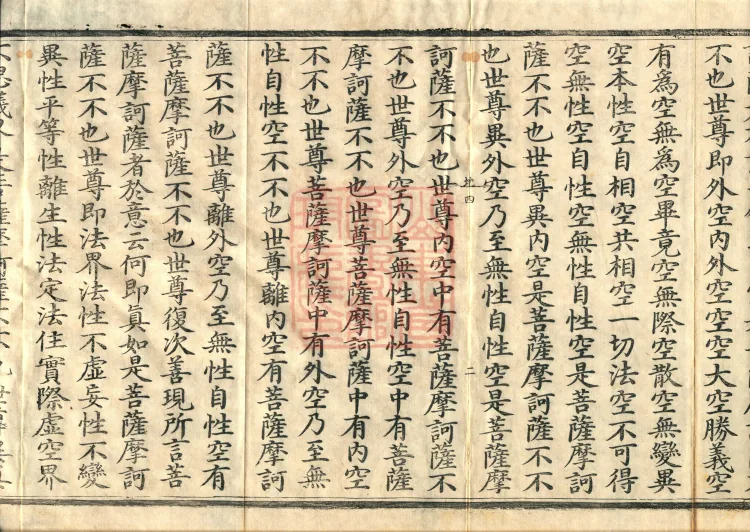 不也世尊即外空内外空空空大空勝義空
有為空無為空畢竟空無際空散空無變異
空本性空自相空共相空一切法空不可得
空無性空自性空無性自性空是菩薩摩訶
薩不不也世尊異内空是菩薩摩訶薩不不
也世尊異外空乃至無性自性空是菩薩摩
訶薩不不也世尊内空中有菩薩摩訶薩不
不也世尊外空乃至無性自性空中有菩薩
摩訶薩不不也世尊菩薩摩訶薩中有内空
不不也世尊菩薩摩訶薩中有外空乃至無
性自性空不不也世尊離内空有菩薩摩訶
薩不不也世尊離外空乃至無性自性空有
菩薩摩訶薩不不也世尊復次善現所言菩
薩摩訶薩者於意云何即真如是菩薩摩訶
薩不不也世尊即法界法性不虛妄性不變
異性平等性離生性法定法住實際虛空界
二